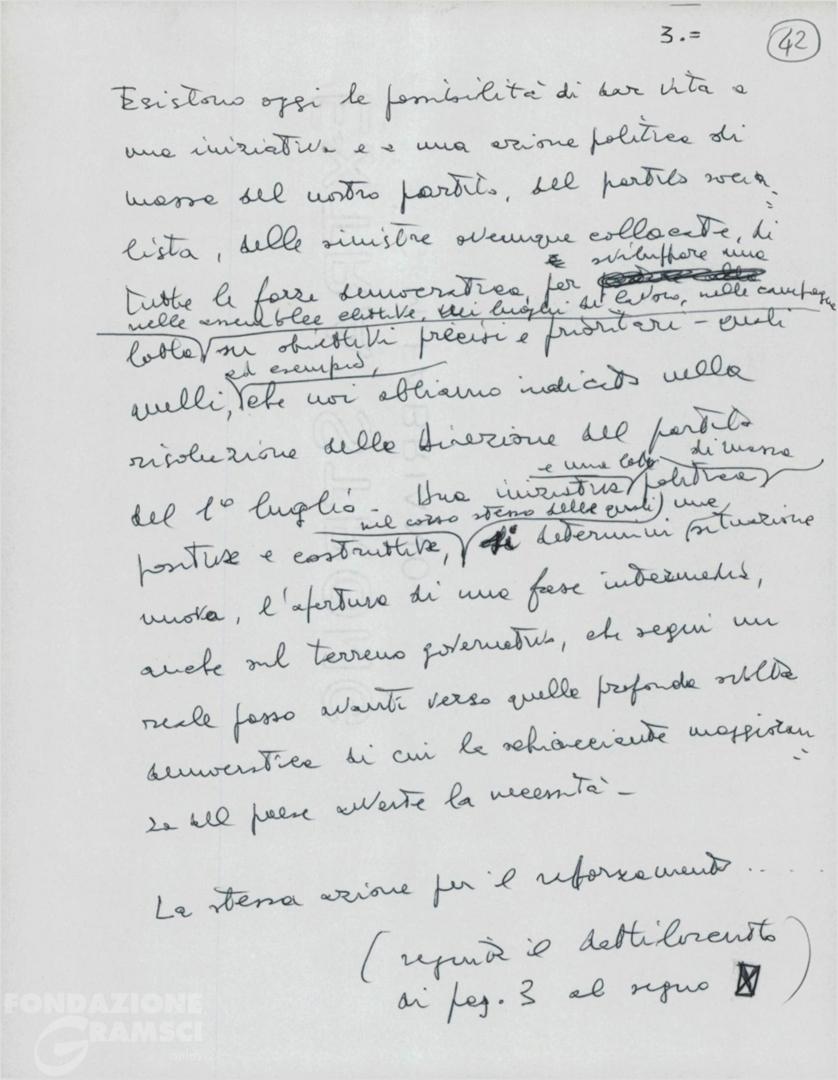 3.= 42
Esistono oggi le possibilità di dar vita a
una iniziativa e a una azione politica di
massa del nostro partito, del partito socia=
lista, delle sinistre ovunque collocate, di
e sviluppare una
tutte le forze democratiche, per
nelle assemblee elettive, nei luoghi di lavoro, nelle campagne
lotta su obiettivi precisi e prioritari - quali
ad esempio,
quelli, che noi abbiamo indicato nella
risoluzione della Direzione del partito
e una lotta di massa
del 1° luglio. Una iniziativa politica
nel corso stesso delle quali una
positiva e costruttiva, si determini situazione
nuova, l'apertura di una fase intermedia,
anche sul terreno governativo, che segni un
reale passo avanti verso quella profonda svolta
democratica di cui la schiacciante maggioran=
za del paese avverte la necessità -
La stessa azione per il rafforzamento....
(seguita il dattiloscritto
di pag. 3 al segno )
FONDAZIONE
GRAMSCI
onlus